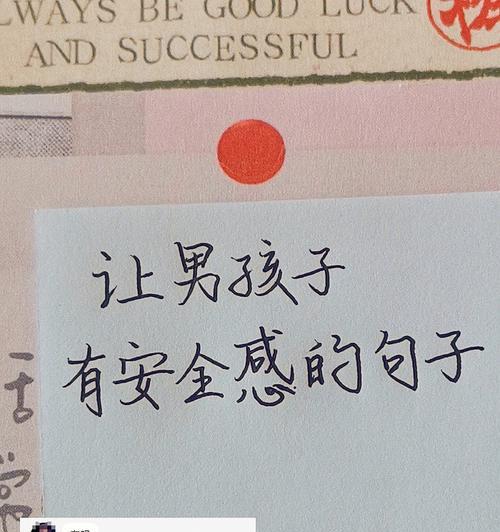 ALWAYS BE GOOD LUCK
AND SUCCESSFUL
让男孩子
有安全感的句子